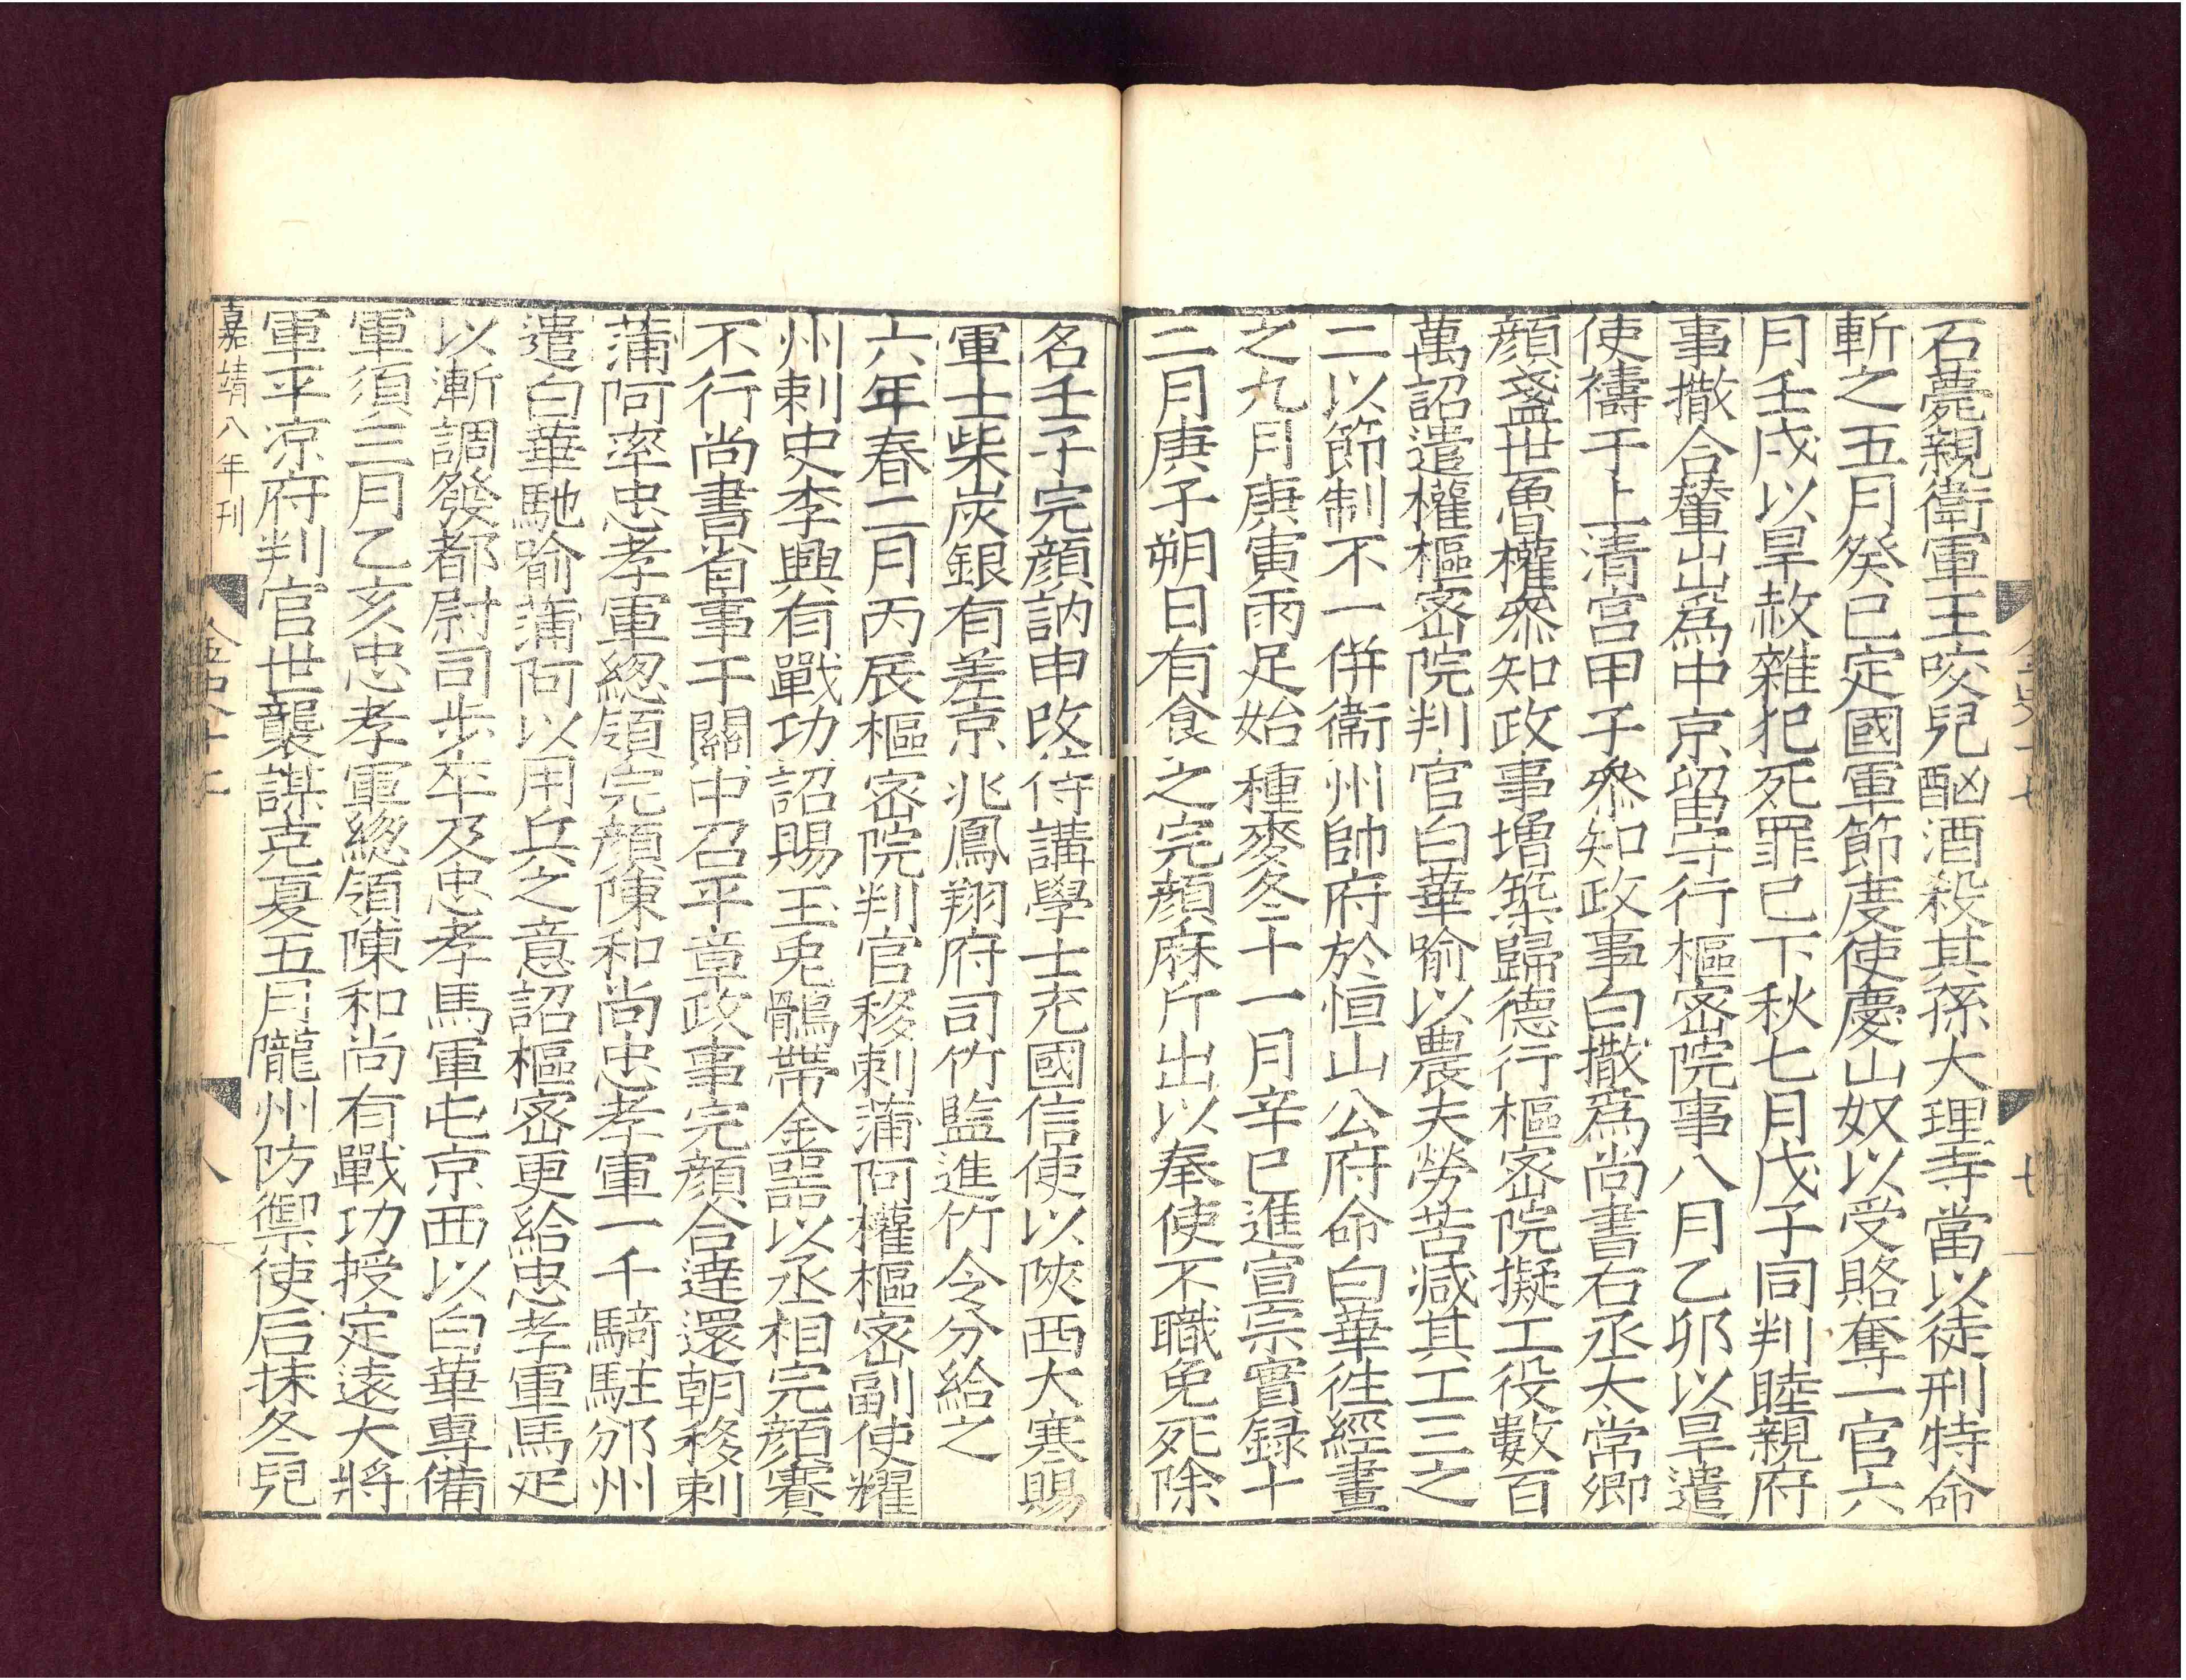 石薨親衛軍王咬兒酗酒殺其孫大理寺當以徒刑特命
斬之五月癸巳定國軍節度使慶山奴以受賂奪一官六
月壬戌以旱赦雜犯死罪已下秋七月戊子同判睦親府
事撒合輦出爲中京留守行樞密院事八月乙卯以旱遣
使禱于上清宮甲子叅知政事白撒爲尚書右丞太常卿
顔盞世魯權叅知政事增築歸德行樞密院擬工役數百
萬詔遣權樞密院判官白華喻以農夫勞苦减其工三之
二以節制不一併衞州帥府於恒山公府命白華徃經畫
之九月庚寅雨足始種麥冬十一月辛巳進宣宗實録十
二月庚子朔日有食之完顔麻斤出以奉使不職免死除
名壬子完顔訥申改侍講學士充國信使以陜西大寒賜
軍士柴炭銀有差京兆鳳翔府司竹監進竹令分給之
六年春二月丙辰樞密院判官移剌蒲阿權樞密副使耀
州刺史李興有戰功詔賜玉兎鶻帶金器以丞相完顔賽
不行尚書省事于關中召平章政事完顔合達還朝移剌
蒲阿率忠孝軍總領完顔陳和尚忠孝軍一千騎駐邠州
遣白華馳喻蒲阿以用兵之意詔樞密更給忠孝軍馬疋
以漸調發都尉司步卒及忠孝馬軍屯京西以白華專備
軍須三月乙亥忠孝軍總領陳和尚有戰功授定遠大將
軍平凉府判官世襲謀克夏五月隴州防禦使后抹冬兒
嘉靖八年刊
八